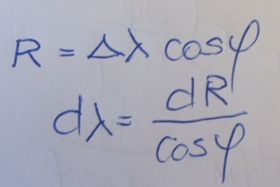 R = Δλ cosφ
dλ = dR / cosφ